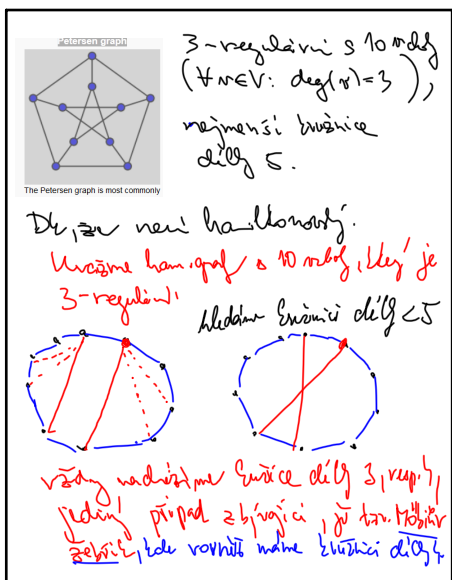 Petersen graph
The Petersen graph is most commonly
3-regulární s 10 vrcholy
(∀v∈V: deg(v)=3),
nejmenší kružnice
délky 5.
Dk, že není hamiltonovský.
Uvažme ham. graf s 10 vrcholy, který je
3-regulární
hledáme kružnici délky <5
vždy nacházíme kružnice délky 3, resp. 4,
jediný případ zbývající, je tzv. Möbiův
žebřík, kde rovněž máme kružnici délky 4.